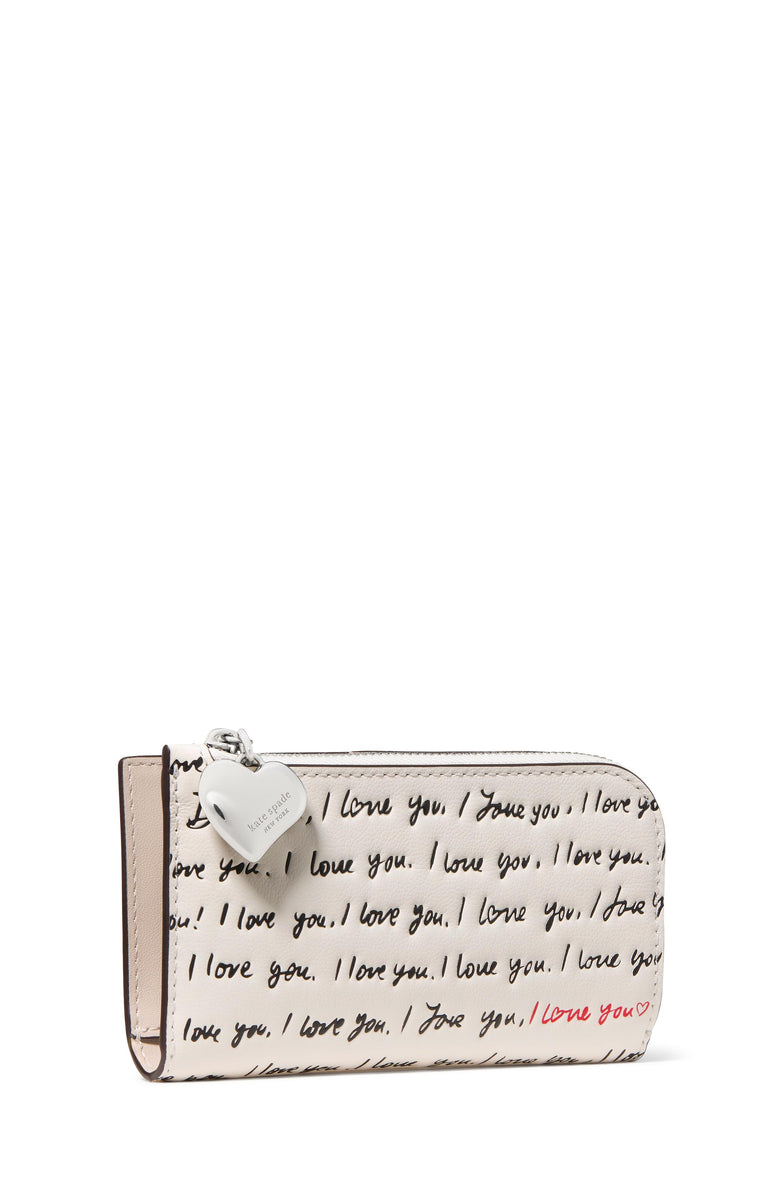 kate spade
NEW YORK
love
I love you, I love you, I love yo
ove you. I love you. I love you, I love you. I
ou! I love you, I love you, I love you, I love y
I love you. I love you. I love you. I love you
love you, I love you. I love you, I love you♡